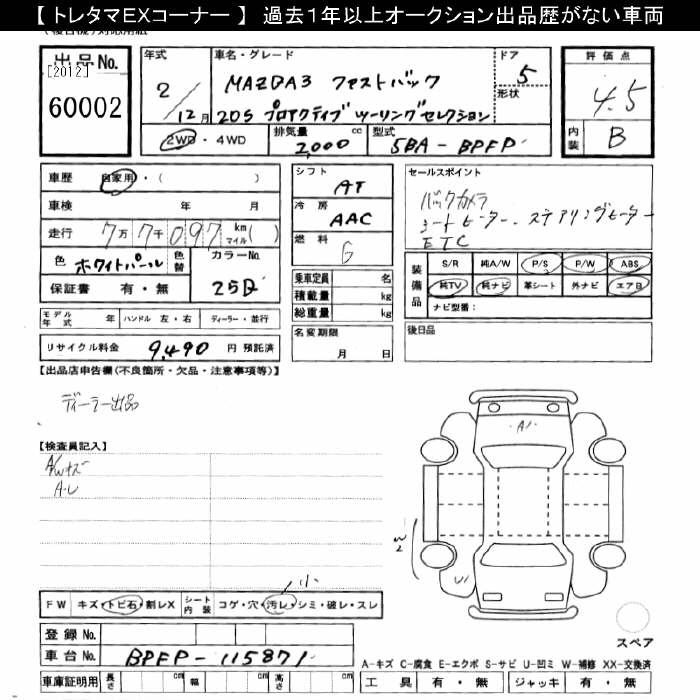 【 トレタマEXコーナー 】 過去１年以上オークション出品歴がない車両
出品No.
[2012]
60002
年式
2
12月
車名・グレード
MAZDA3 ファストバック
20S プロアクティブ ツーリングセレクション
ドア
5
形状
評価点
4.5
内装
B
2WD・4WD
排気量
2,000
cc
型式
5BA-BPFP
車歴
自家用・( )
車検
年 月
走行
7万7千097
km
マイル( )
色
ホワイトパール
色替
カラーNo.
25D
保証書 有・無
シフト
AT
冷房
AAC
燃料
G
乗車定員 名
積載量 kg
総重量 kg
名変期限
月 日
セールスポイント
バックカメラ
シートヒーター、ステアリングヒーター
ETC
装備品
S/R 純A/W P/S P/W ABS
純TV 純ナビ 革シート 外ナビ エアB
ナビ型番:
後日品
モデル年式 年 ハンドル 左・右 ディーラー・並行
リサイクル料金 9,490 円 預託済
【出品店申告欄(不良箇所・欠品・注意事項等)】
ディーラー出品
【検査員記入】
A/Wキズ
A・U
A1
W2
U1
小
FW キズ・トビ石・割レX
シート内装 コゲ・穴・汚レ・シミ・破レ・スレ
登録No.
車台No. BPFP-115871
車庫証明用 長さ cm 幅 cm 高さ cm
スペア
A-キズ C-腐食 E-エクボ S-サビ U-凹ミ W-補修 XX-交換済
工具 有・無 ジャッキ 有・無